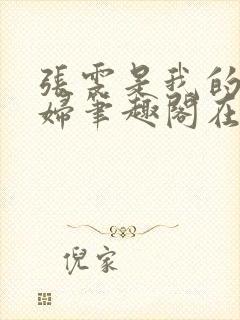 張雲是我的
婦筆趣閣在
倪家